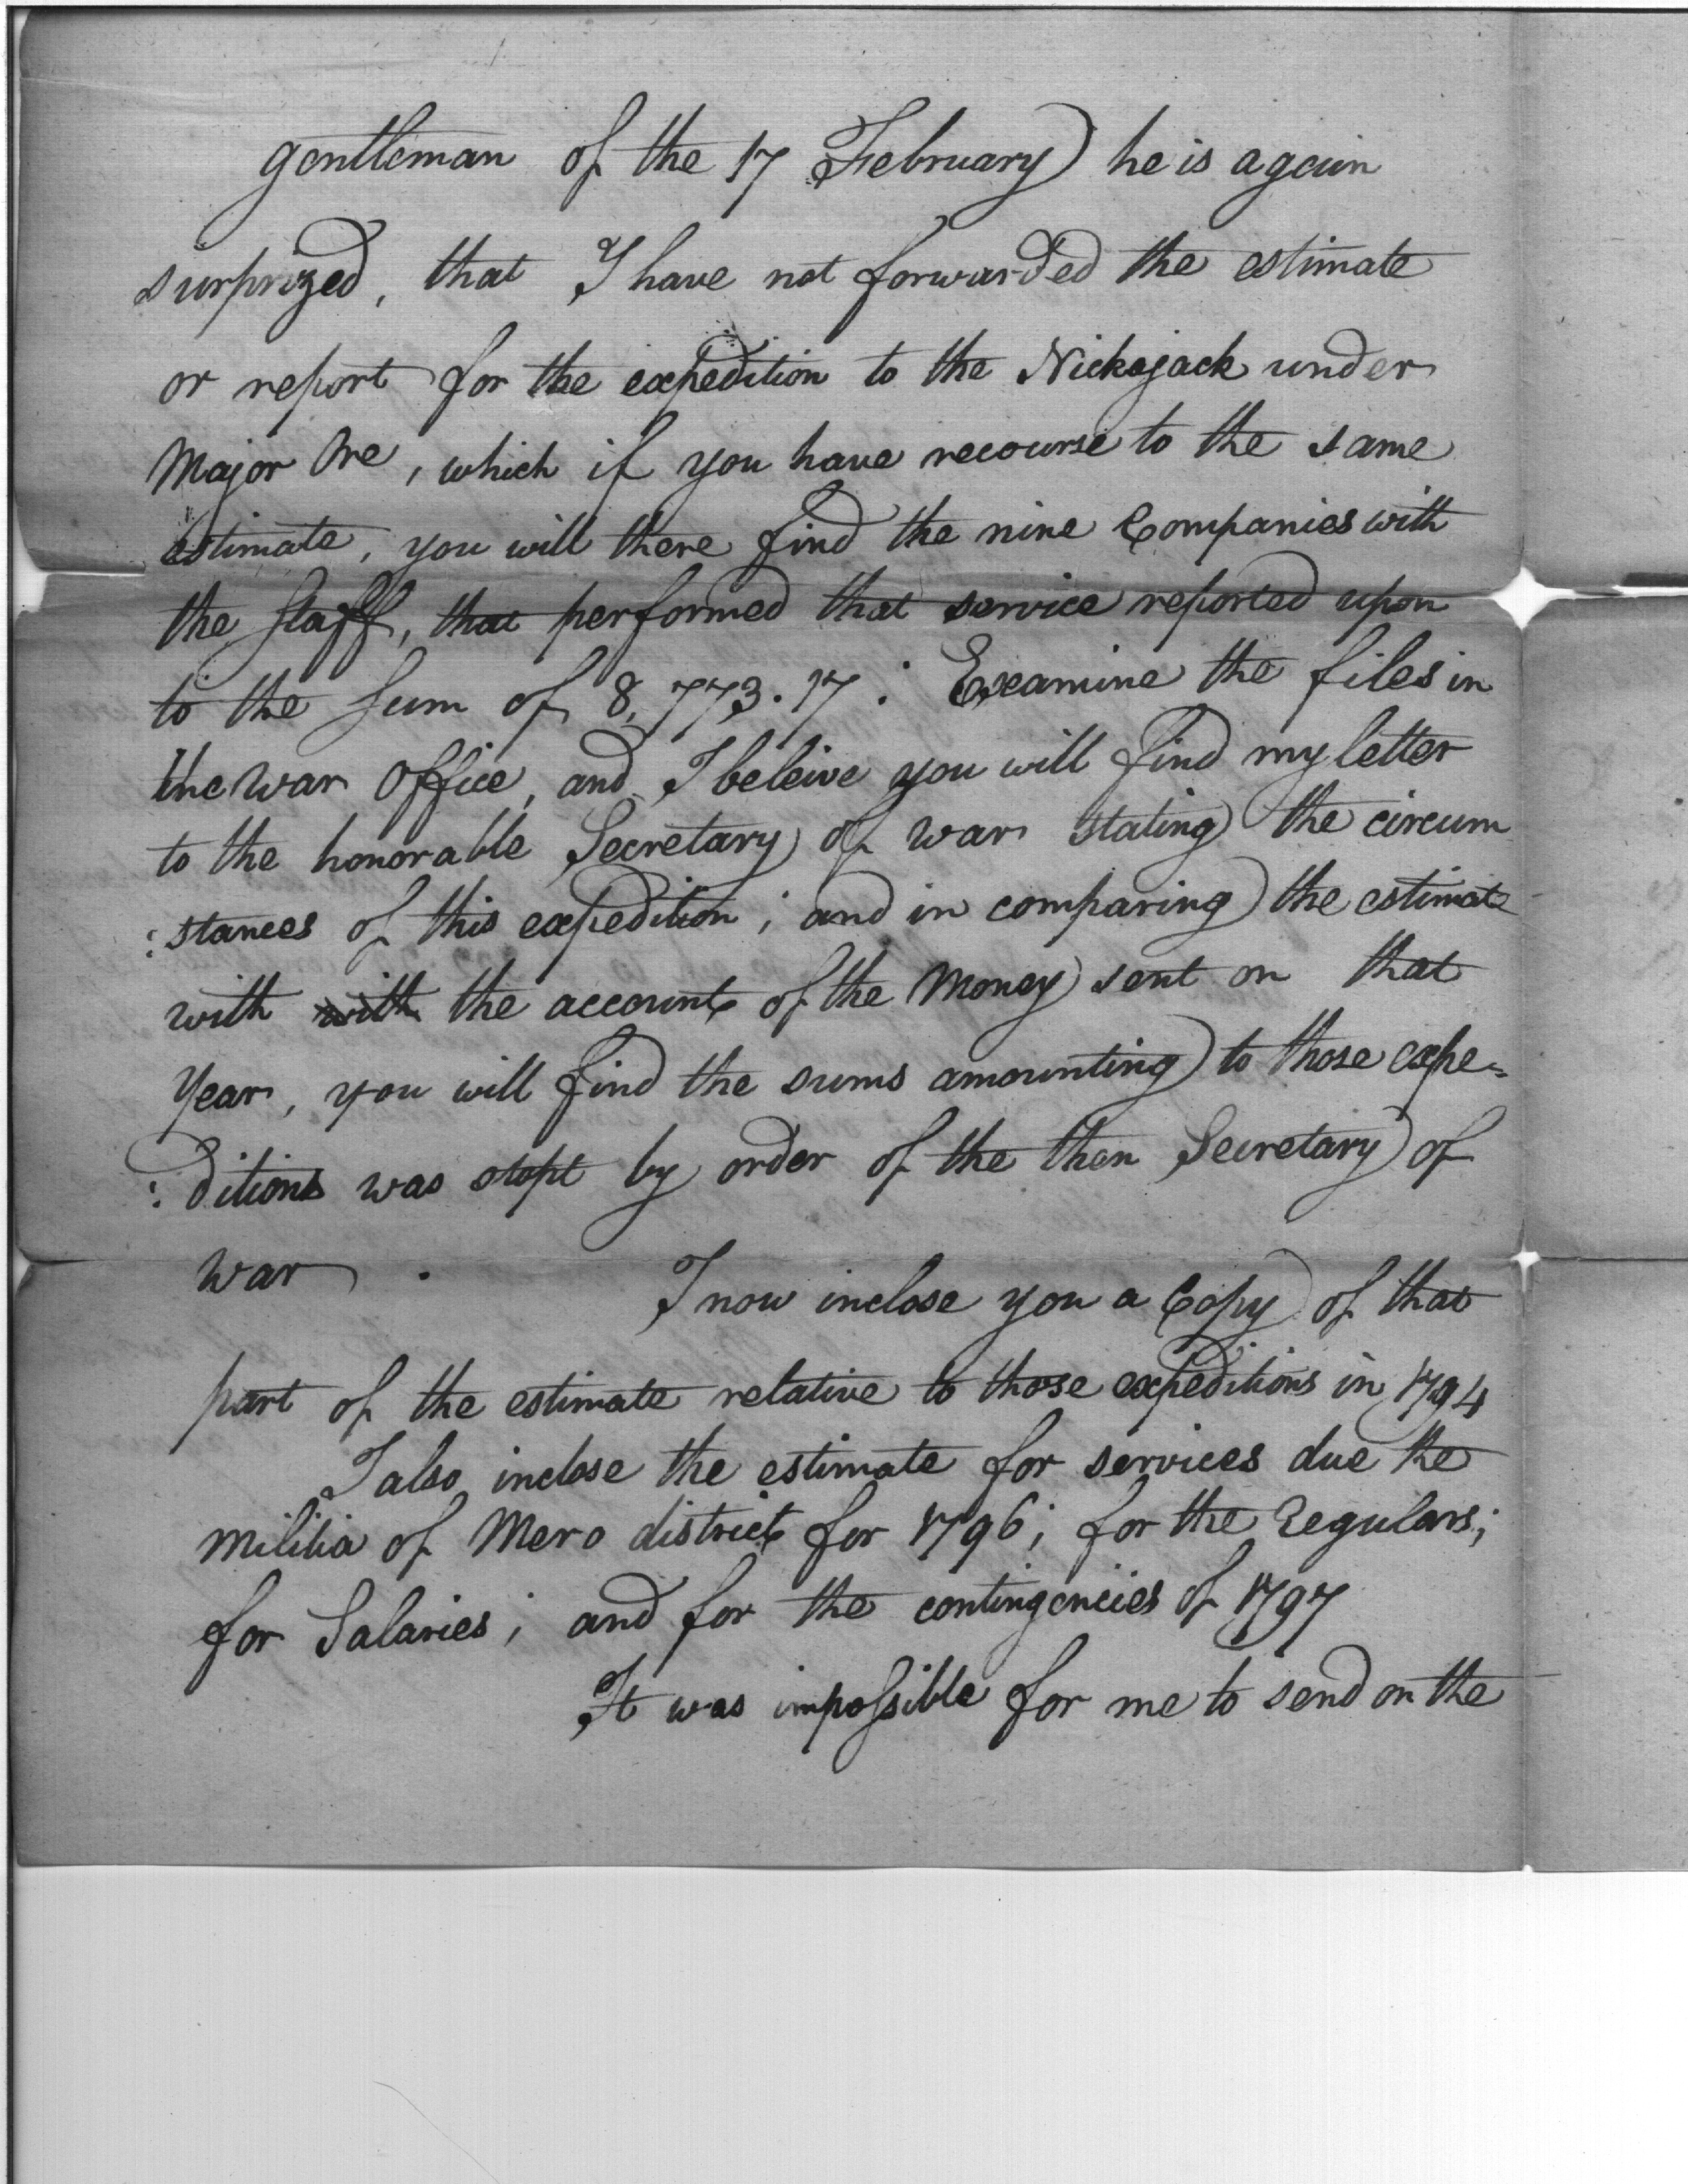 gentleman of the 17 February he is again
surprized, that I have not forwarded the estimate
or report for the expedition to the Nickajack under
Major Ore, which if you have recourse to the same
estimate, you will there find the nine Companies with
the Staff, that performed that service reported upon
to the Sum of 8,773.17: Examine the files in
the War Office, and I beleive you will find my letter
to the honorable Secretary of war stating the circum
:stances of this expedition; and in comparing the estimate
with with the account of the Money sent on that
Year, you will find the sums amounting to those expe=
:ditions was stopt by order of the then Secretary of
War.
I now inclose you a Copy of that
part of the estimate relative to those expeditions in 1794
I also inclose the estimate for services due the
Militia of Mero district for 1796; for the Regulars;
for Salaries; and for the contingencies of 1797
It was impossible for me to send on the